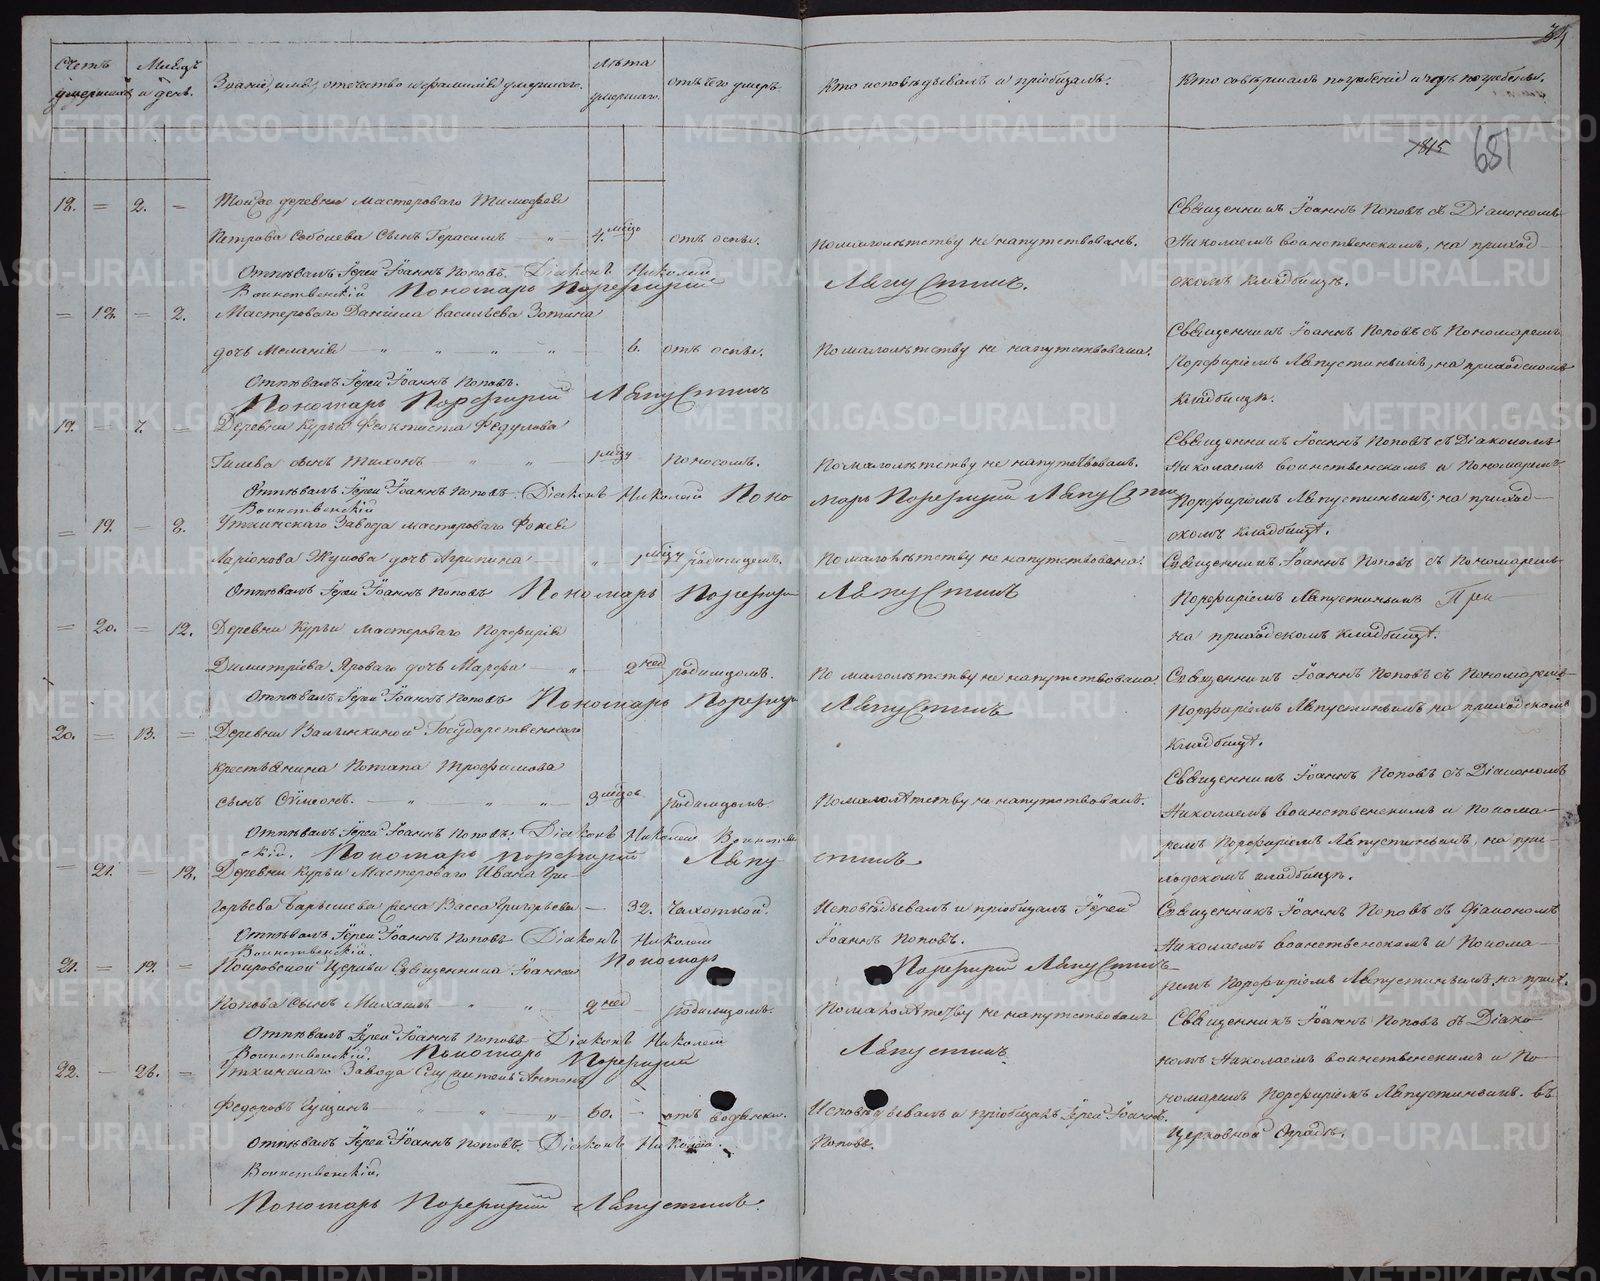 34
Счетъ умершихъ
Мѣсяцъ и день.
Званіе, имя, отчество и фамилія умершаго.
Лѣта умершаго.
отъ чего умеръ.
Кто исповѣдывалъ и пріобщалъ.
Кто совершалъ погребеніе и гдѣ погребены.
1815
651
18. = 2. = Той же деревни мастероваго Тимофея
Петрова Соболева сынъ Герасимъ — „ — 4. мѣсе отъ оспы. По малолѣтству не напутствованъ.
Священникъ Іоаннъ Поповъ съ Діакономъ
Николаемъ Воинственскимъ, на приход-
скомъ кладбищѣ.
Отпѣвалъ Іерей Іоаннъ Поповъ. Діаконъ Николай
Воинственскій Пономарь Порфирий Ляпустинъ.
= 18. = 2. Мастероваго Даніила Васильева Зотина
дочь Меланія — „ „ „ „ 6. отъ оспы. По малолѣтству не напутствована.
Священникъ Іоаннъ Поповъ съ Пономаремъ
Порфиріемъ Ляпустинымъ, на приходскомъ
кладбищѣ.
Отпѣвалъ Іерей Іоаннъ Поповъ.
Пономарь Порфирий Ляпустинъ
19. = 7. = Деревни Курьи Феоктиста Федулова
Гилева сынъ Тихонъ — „ „ — мѣсяцу поносомъ. По малолѣтству не напутствованъ.
Священникъ Іоаннъ Поповъ съ Діакономъ
Николаемъ Воинственскимъ и Пономаремъ
Порфиріемъ Ляпустинымъ, на приход-
скомъ кладбищѣ.
Отпѣвалъ Іерей Іоаннъ Поповъ. Діаконъ Николай Поно
марь Порфирий Ляпусти
Воинственскій
= 19. = 8. Уткинскаго Завода мастероваго Фокея
Ларіонова Жукова дочь Агрипина — „ 1 мѣсяцу родимцомъ. По малолѣтству не напутствована.
Священникъ Іоаннъ Поповъ съ Пономаремъ
Порфиріемъ Ляпустинымъ При
на приходскомъ кладбищѣ.
Отпѣвалъ Іерей Іоаннъ Поповъ Пономарь Порфири Ляпустинъ
= 20. = 12. Деревни Курьи мастероваго Порфирія
Димитріева Яроваго дочь Марфа — „ — 2 нед родимцомъ. По малолѣтству не напутствована.
Священникъ Іоаннъ Поповъ съ Пономаремъ
Порфиріемъ Ляпустинымъ на приходскомъ
кладбищѣ.
Отпѣвалъ Іерей Іоаннъ Поповъ Пономарь Порфири Ляпустинъ
20. = 13. = Деревни Государственнаго
крестьянина Потапа Трофимова
сынъ Симеонъ. — „ „ „ — 3 мѣсяцъ родимцомъ По малолѣтству не напутствованъ.
Священникъ Іоаннъ Поповъ съ Діакономъ
Николаемъ Воинственскимъ и Понома-
ремъ Порфиріемъ Ляпустинымъ, на при-
ходскомъ кладбищѣ.
Отпѣвалъ Іерей Іоаннъ Поповъ: Діаконъ Николай Воинстве
скій. Пономарь Порфирий Ляпу стинъ
— 21. = 18. Деревни Курьи Мастероваго Ивана Гри-
горьева Барышева жена Васса Григорьева — 32. чахоткой. Исповѣдывалъ и пріобщалъ Іерей
Іоаннъ Поповъ.
Священникъ Іоаннъ Поповъ съ Діакономъ
Николаемъ Воинственскомъ и Понома-
ремъ Порфиріемъ Ляпустинымъ, на прих.
Отпѣвалъ Іерей Іоаннъ Поповъ Діаконъ Николай
Воинственскій. Пономарь Порфирий Ляпустинъ
21. = 19. = Покровской Церкви Священника Іоанна
Попова сынъ Михаилъ „ „ 2 нед родимцомъ. По малолѣтству не напутствованъ
Священникъ Іоаннъ Поповъ съ Діако-
номъ Николаемъ Воинственскимъ и По-
номаремъ Порфиріемъ Ляпустинымъ. въ
церковной оградѣ.
Отпѣвалъ Іерей Іоаннъ Поповъ Діаконъ Николай
Воинственскій. Пономарь Порфирий Ляпустинъ.
22. — 26. = Уткинскаго Завода Служитель Антонъ
Федоровъ Гущинъ „ „ „ 60. — отъ водянки. Исповѣдывалъ и пріобщалъ Іерей Іоаннъ
Поповъ.
Отпѣвалъ Іерей Іоаннъ Поповъ. Діаконъ Николай.
Воинственскій.
Пономарь Порфирий Ляпустинъ.
METRIKI.GASO-URAL.RU